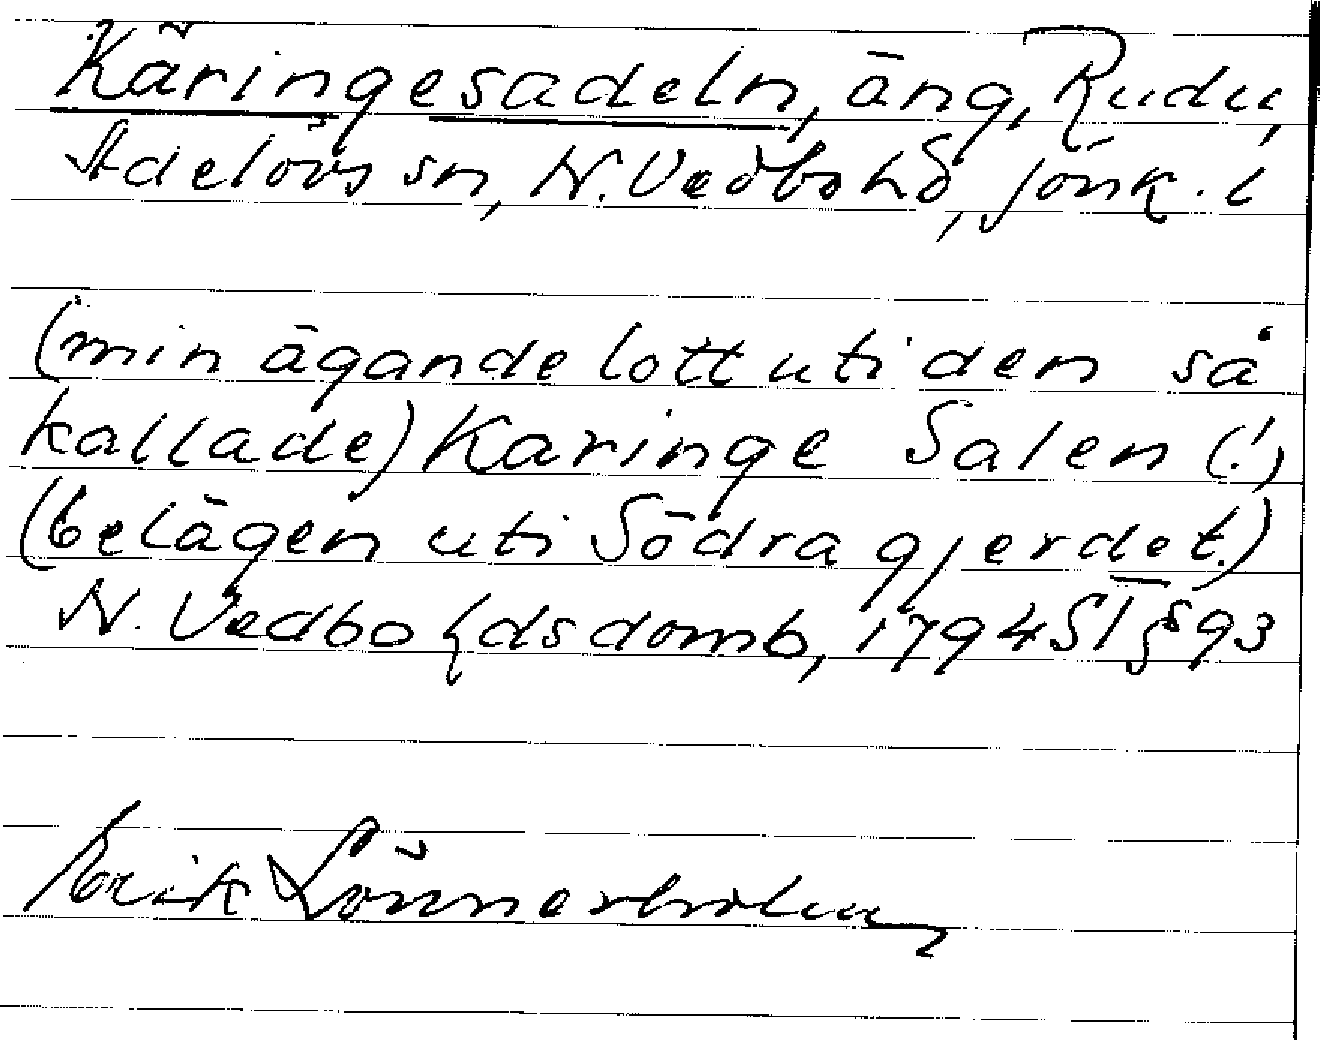 Käringesadeln, äng, Rudu,
Adelövs sn, N. Vedbo hd, Jönk. l
(min ägande lott uti den så
kallade) Karinge Salen (!)
(belägen uti Södra gjerdet.)
N. Vedbo hdsdomb, 1794 § 93
Erik Lönnerholm